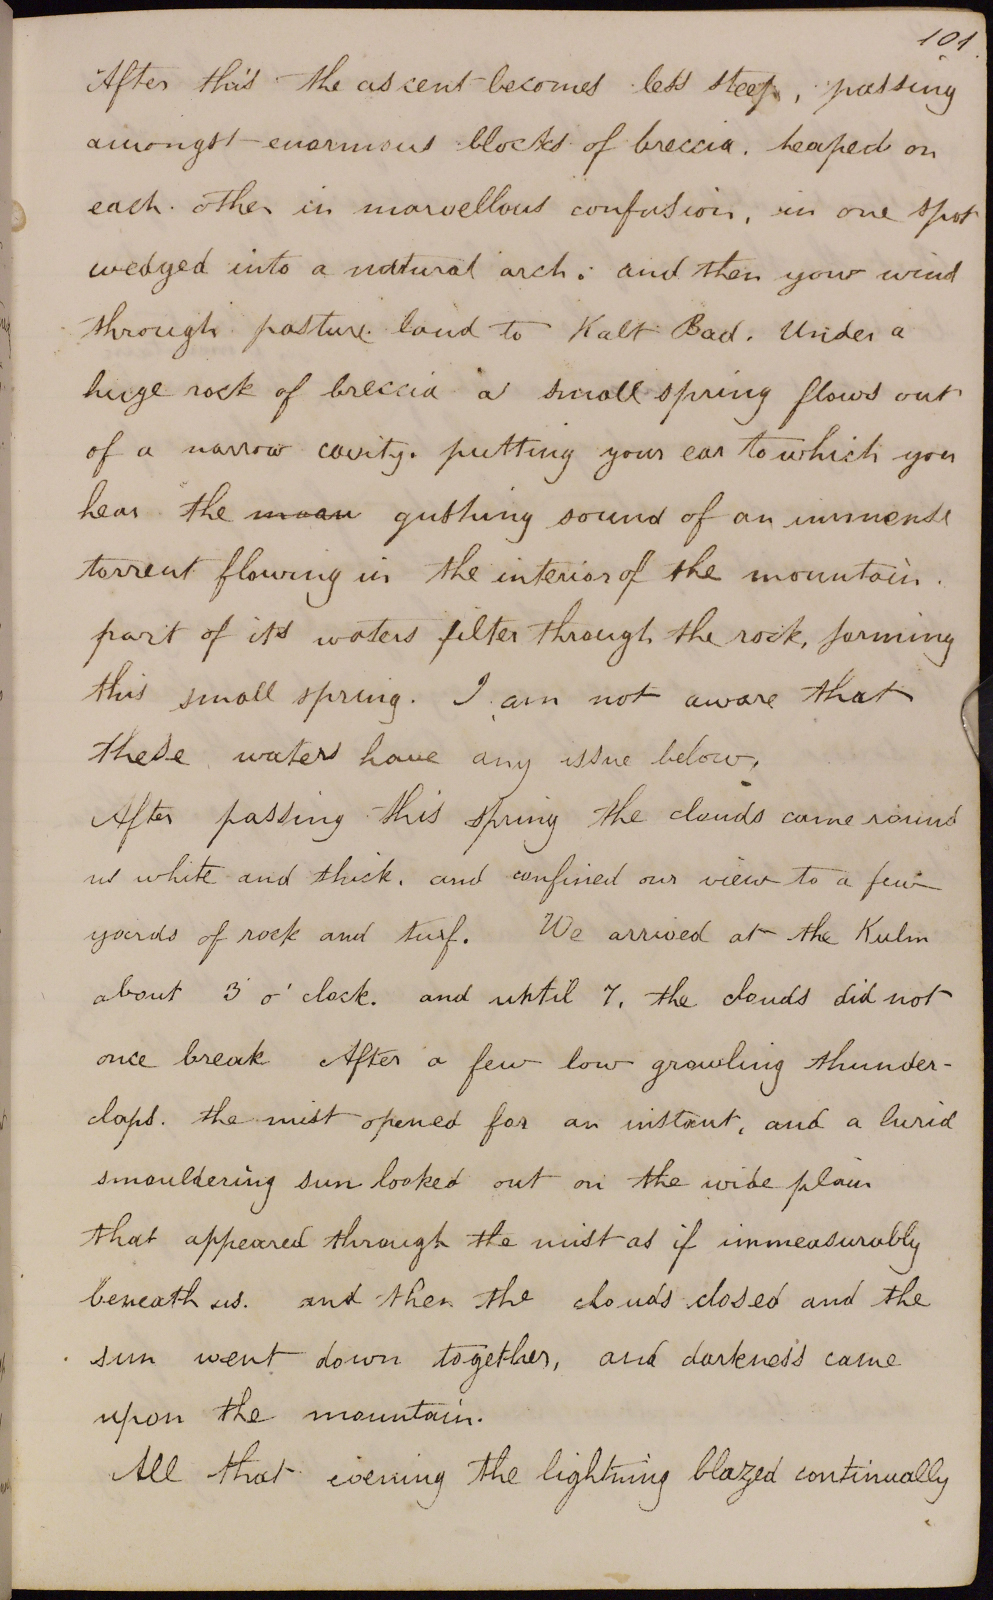 101
After this the ascent becomes less steep, passing
amongst enormous blocks of breccia. heaped on
each other in marvellous confusion, in one spot
wedged into a natural arch. and then you wind
through pasture land to Kalt Bad. Under a
huge rock of breccia a small spring flows out
of a narrow cavity. putting your ear to which you
hear the moan gushing sound of an immense
torrent flowing in the interior of the mountain.
part of its waters filter through the rock, forming
this small spring. I am not aware that
these waters have any issue below.
After passing this spring the clouds came round
us white and thick. and confined our view to a few
yards of rock and turf. We arrived at the Kulm
about 3 o'clock. and until 7, the clouds did not
once break After a few low growling thunder-
claps. the mist opened for an instant, and a lurid
smouldering sun looked out on the wide plain
that appeared through the mist as if immeasurably
beneath us. and then the clouds closed and the
sun went down together, and darkness came
upon the mountain.
All that evening the lightning blazed continually